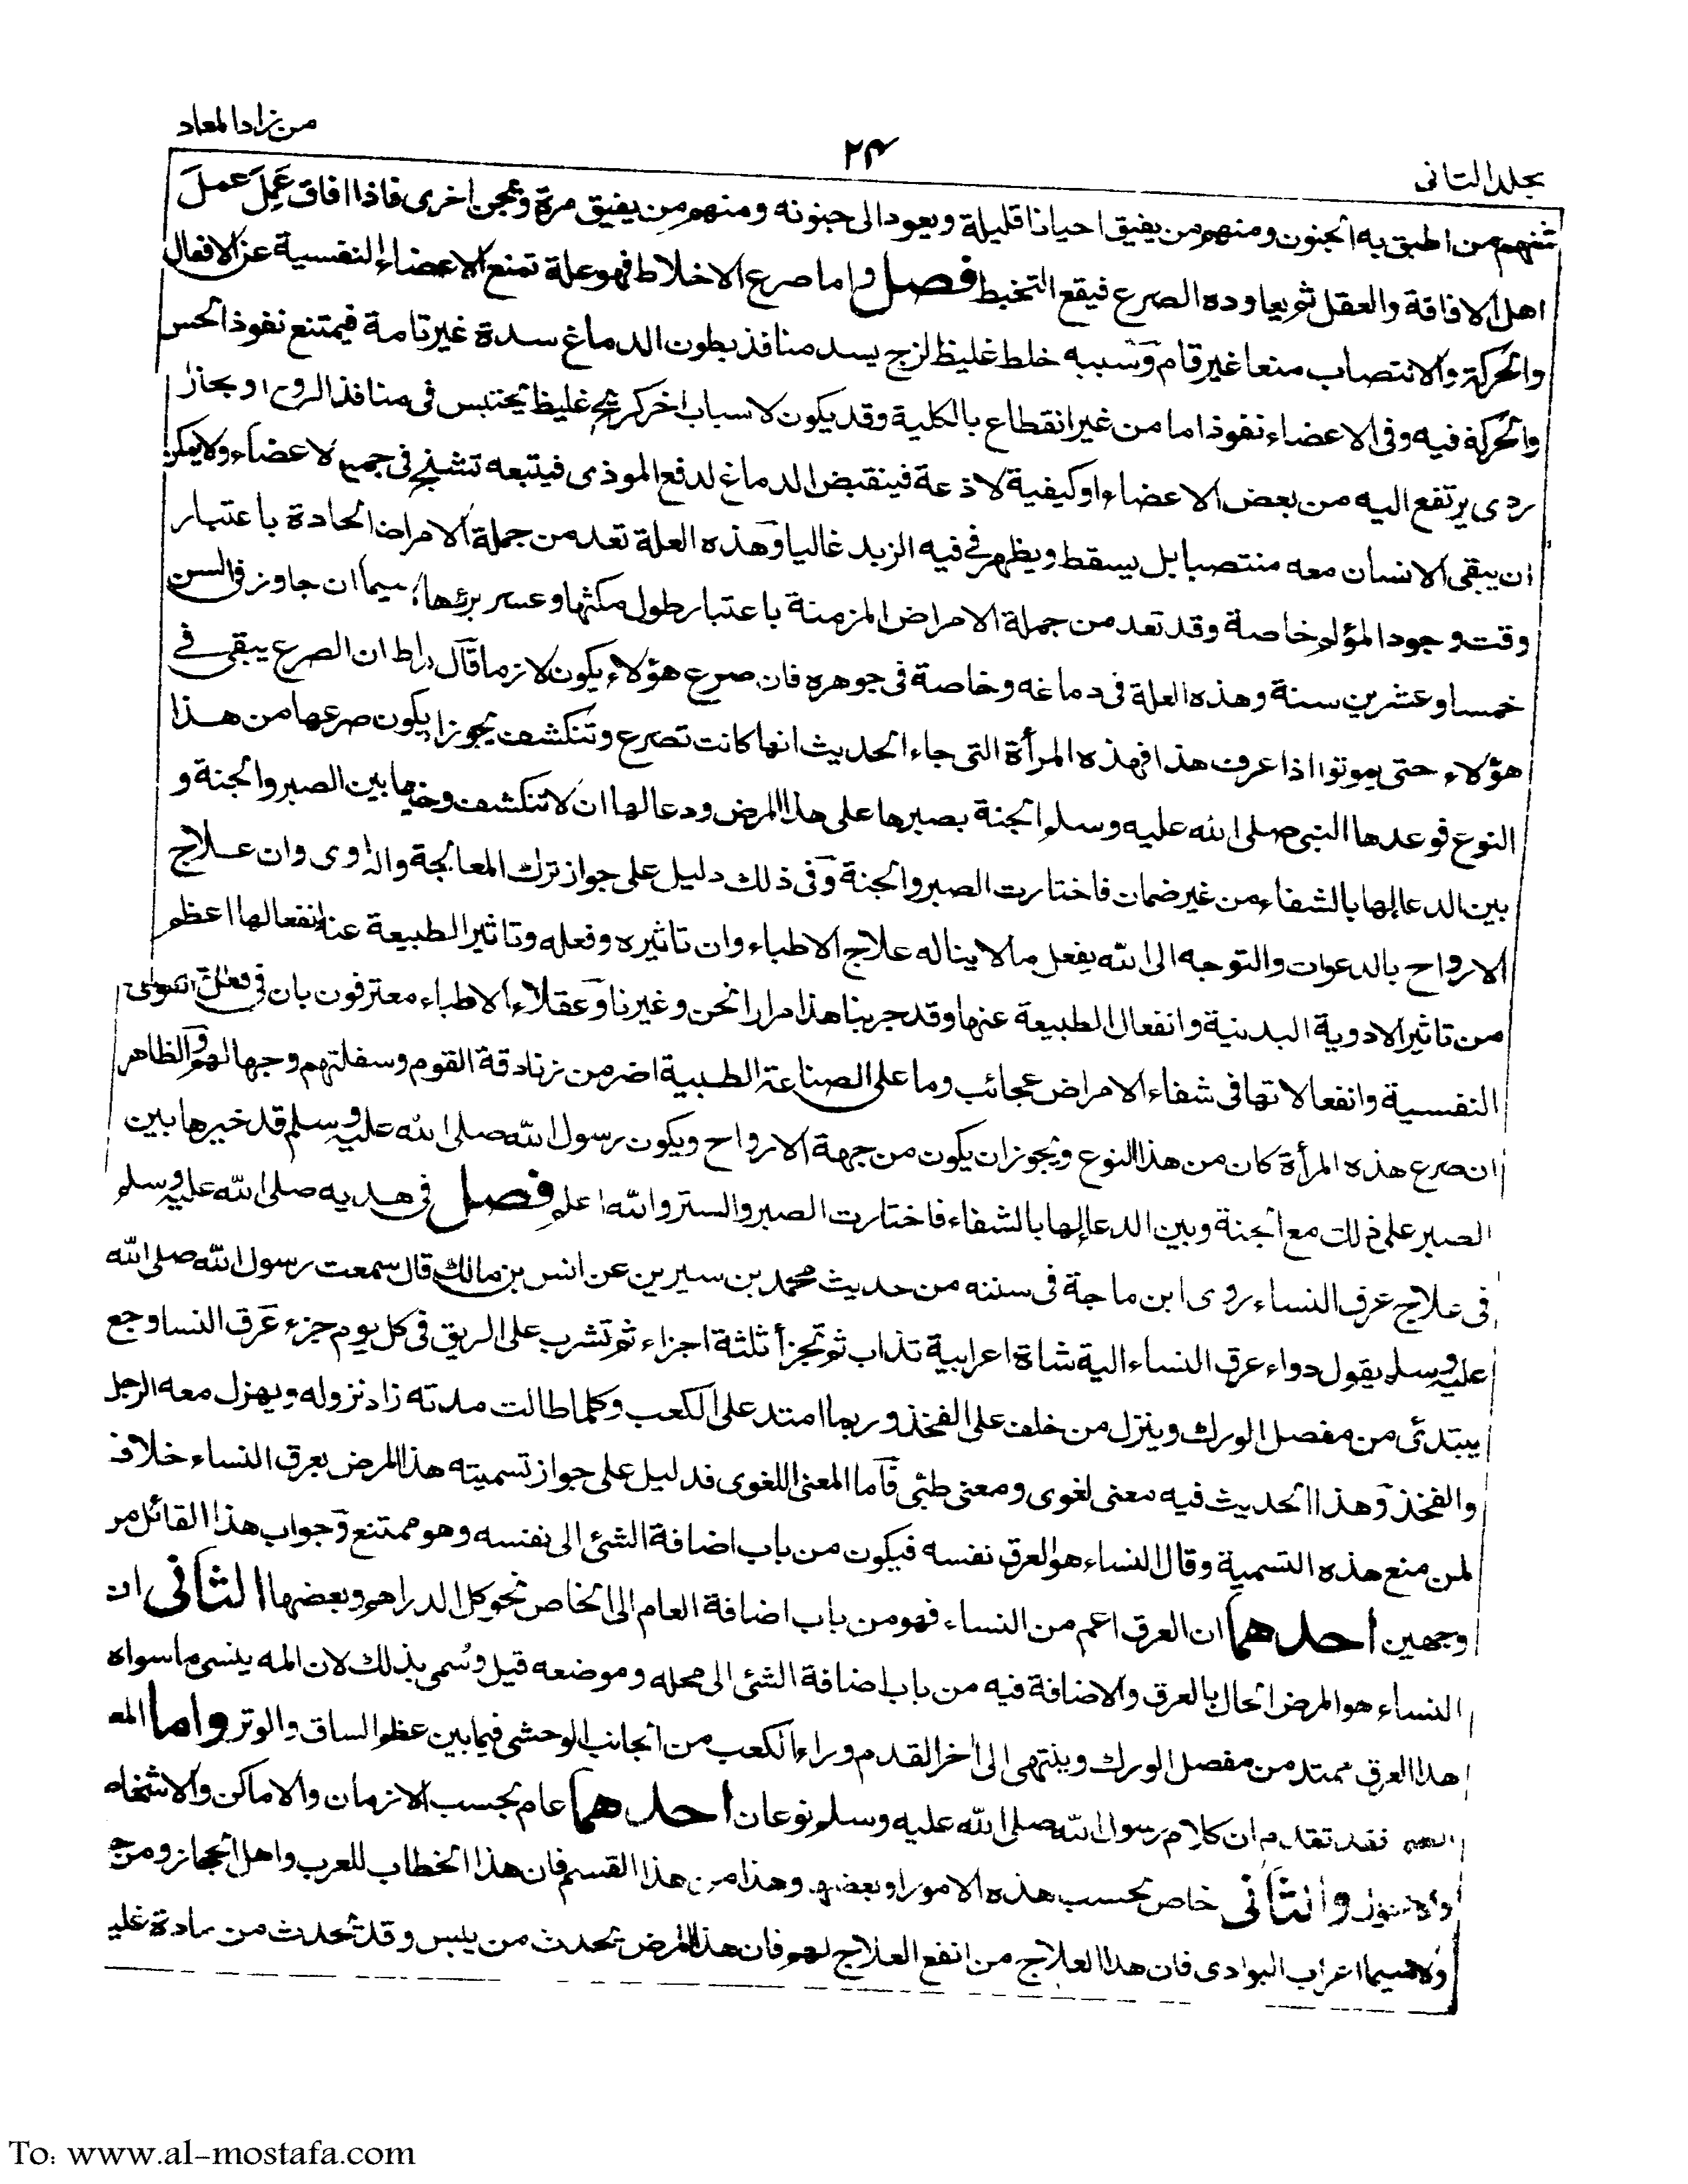 من زاد المعاد
۲۴
جلد الثانى
فمنهم من اطبق به الجنون ومنهم من يفيق احيانا قليلة ويعود الى جنونه ومنهم من يفيق مرة ويجن اخرى فاذا افاق عَمِلَ عملَ
اهل الافاقة والعقل ثم يعاوده الصرع فيقع التخبط فصل واما صرع الاخلاط فهو علة تمنع الاعضاء النفسية عن الافعال
والحركة والانتصاب منعا غير تام وسببه خلط غليظ لزج يسد منافذ بطون الدماغ سدة غير تامة فيمتنع نفوذ الحس
والحركة فيه وفى الاعضاء نفوذ اما من غير انقطاع بالكلية وقد يكون لاسباب اخر كريح غليظ يحتبس فى منافذ الروح او بخار
ردى يرتفع اليه من بعض الاعضاء او كيفية لاذعة فينقبض الدماغ لدفع الموذى فيتبعه تشنج فى جميع لاعضاء ولا يمكن
ان يبقى الانسان معه منتصبا بل يسقط ويظهر فى فيه الزبد غالبا وهذه العلة تعد من جملة الامراض الحادة باعتبار
وقت وجود المؤلم خاصة وقد تعد من جملة الامراض المزمنة باعتبار طول مكثها وعسر برئها لا سيما ان جاوز فى السن
خمسا وعشرين سنة وهذه العلة فى دماغه وخاصة فى جوهره فان صرع هؤلاء يكون لازما قال راط ان الصرع يبقى فى
هؤلاء حتى يموتوا اذا عرف هذا فهذه المرأة التى جاء الحديث انها كانت تصرع وتنكشف يجوز ا يكون صرعها من هذا
النوع فوعدها النبى صلى الله عليه وسلم الجنة بصبرها على هذا المرض ودعا لها ان لا تنكشف وخيها بين الصبر والجنة و
بين الدعا لها بالشفاء من غير ضمان فاختارت الصبر والجنة وفى ذلك دليل على جواز ترك المعالجة والداوى وان علاج
الارواح بالدعوات والتوجه الى الله يفعل ما لا يناله علاج الاطباء وان تاثيره وفعله وتاثير الطبيعة عنه وانفعالها اعظم
من تاثير الادوية البدنية وانفعال الطبيعة عنها وقد جربنا هذا مرارا نحن وغيرنا وعقلاء الاطباء معترفون بان فى فعل القوى
النفسية وانفعالاتها فى شفاء الامراض عجائب وما على الصناعة الطبية اضر من زنادقة القوم وسفلتهم وجهالهم والظاهر
ان صرع هذه المرأة كان من هذا النوع ويجوز ان يكون من جهة الارواح ويكون رسول الله صلى الله عليه وسلم قد خيرها بين
الصبر على ذلك مع الجنة وبين الدعا لها بالشفاء فاختارت الصبر والستر والله اعلم فصل فى هديه صلى الله عليه وسلم
فى علاج عرق النساء روى ابن ماجة فى سننه من حديث محمد بن سيرين عن انس بن مالك قال سمعت رسول الله صلى الله
عليه وسلم يقول دواء عرق النساء الية شاة اعرابية تذاب ثم تجزأ ثلثة اجزاء ثم تشرب على الريق فى كل يوم جزء عرق النسا وجع
يبتدئ من مفصل الورك وينزل من خلف على الفخذ وربما امتد على الكعب وكلما طالت مدته زاد نزوله ويهزل معه الرجل
والفخذ وهذا الحديث فيه معنى لغوى ومعنى طبى فاما المعنى اللغوى فدليل على جواز تسميته هذا المرض بعرق النساء خلافه
لمن منع هذه التسمية وقال النساء هو العرق نفسه فيكون من باب اضافة الشئ الى نفسه وهو ممتنع وجواب هذا القائل مر
وجهين احدهما ان العرق اعم من النساء فهو من باب اضافة العام الى الخاص نحو كل الدراهم وبعضها الثانى ان
النساء هو المرض الحال بالعرق والاضافة فيه من باب اضافة الشئ الى محله وموضعه قيل وسمى بذلك لان المه ينسى ما سواه
هذا العرق ممتد من مفصل الورك وينتهى الى اخر القدم وراء الكعب من الجانب الوحشى فيما بين عظم الساق والوتر واما المع
فقد تقدم ان كلام رسول الله صلى الله عليه وسلم نوعان احدهما عام بحسب الازمان والاماكن والاشخاص
والاحوال والثانى خاص بحسب هذه الامور او بعضها وهذا من هذا القسم فان هذا الخطاب للعرب واهل الحجاز ومن ج
ولا سيما اعراب البوادى فان هذا العلاج من انفع العلاج لهم فان هذا المرض يحدث من يبس وقد تحدث من مادة غلي
To: www.al-mostafa.com